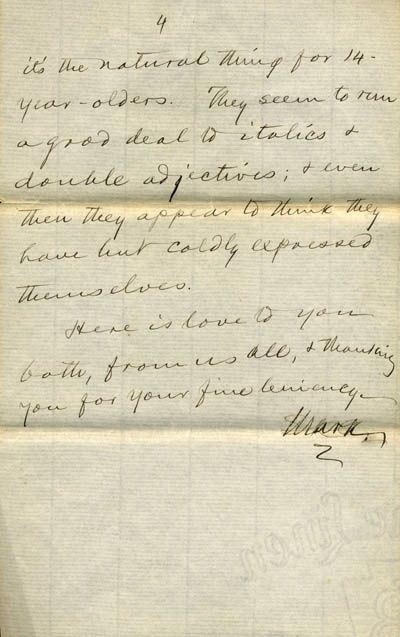 4
it's the natural thing for 14-
year-olders. They seem to run
a good deal to italics &
double adjectives; & even
then they appear to think they
have but coldly expressed
themselves.
Here is love to you
both, from us all, & thanking
you for your fine leniency—
Mark.